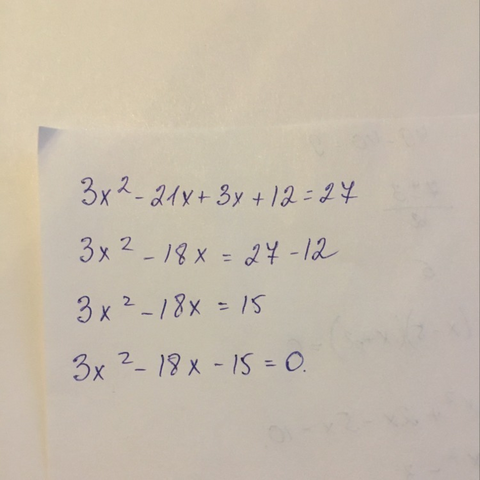 3x² - 21x + 3x + 12 = 27
3x² - 18x = 27 - 12
3x² - 18x = 15
3x² - 18x - 15 = 0.